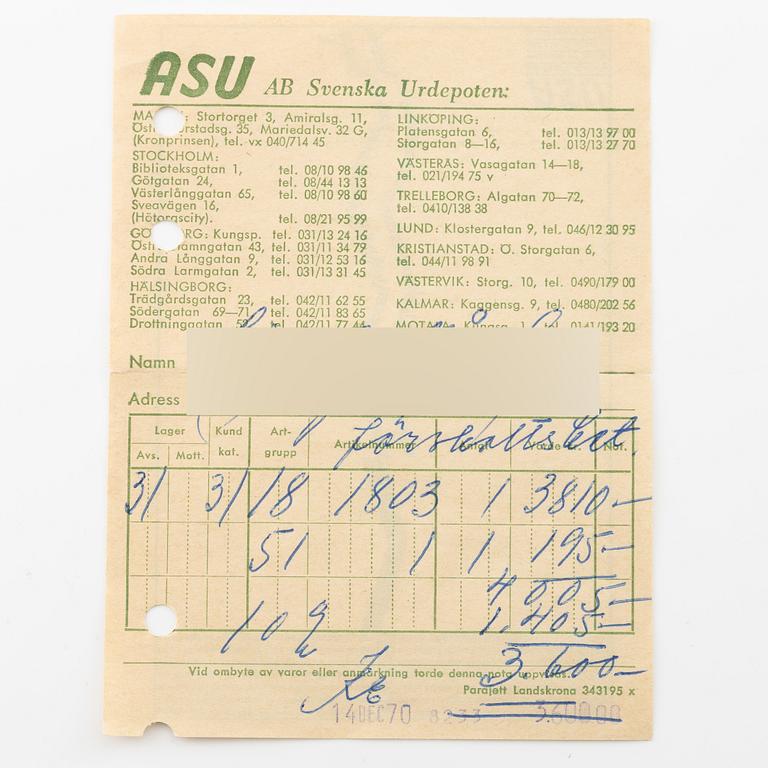 ASU AB Svenska Urdepoten:
MA : Stortorget 3, Amiralsg. 11,
Öst rstadsg. 35, Mariedalsv. 32 G,
(Kronprinsen), tel. vx 040/714 45
STOCKHOLM:
Biblioteksgatan 1, tel. 08/10 98 46
Götgatan 24, tel. 08/44 13 13
Västerlånggatan 65, tel. 08/10 98 60
Sveavägen 16,
(Hötorgscity). tel. 08/21 95 99
GÖ RG: Kungsp. tel. 031/13 24 16
Öst amngatan 43, tel. 031/11 34 79
Andra Långgatan 9, tel. 031/12 53 16
Södra Larmgatan 2, tel. 031/13 31 45
HÄLSINGBORG:
Trädgårdsgatan 23, tel. 042/11 62 55
Södergatan 69—71, tel. 042/11 83 65
Drottninggatan tel. 042/11 77 44
LINKÖPING:
Platensgatan 6, tel. 013/13 97 00
Storgatan 8—16, tel. 013/13 27 70
VÄSTERÅS: Vasagatan 14—18,
tel. 021/194 75 v
TRELLEBORG: Algatan 70—72,
tel. 0410/138 38
LUND: Klostergatan 9, tel. 046/12 30 95
KRISTIANSTAD: Ö. Storgatan 6,
tel. 044/11 98 91
VÄSTERVIK: Storg. 10, tel. 0490/179 00
KALMAR: Kaggensg. 9, tel. 0480/202 56
MOTALA: Kungsg. 1, tel. 0141/193 20
Namn
Adress
Lager Kund kat. Art-grupp Artikelnummer Antal Not.
Avs. Mott.
31 31 18 1803 1 3810—
51 1 1 195—
4005—
1.405—
3.600—
Vid ombyte av varor eller anmärkning torde denna nota uppvisas.
Parajett Landskrona 343195 x
14DEC70 8233 3.600.00